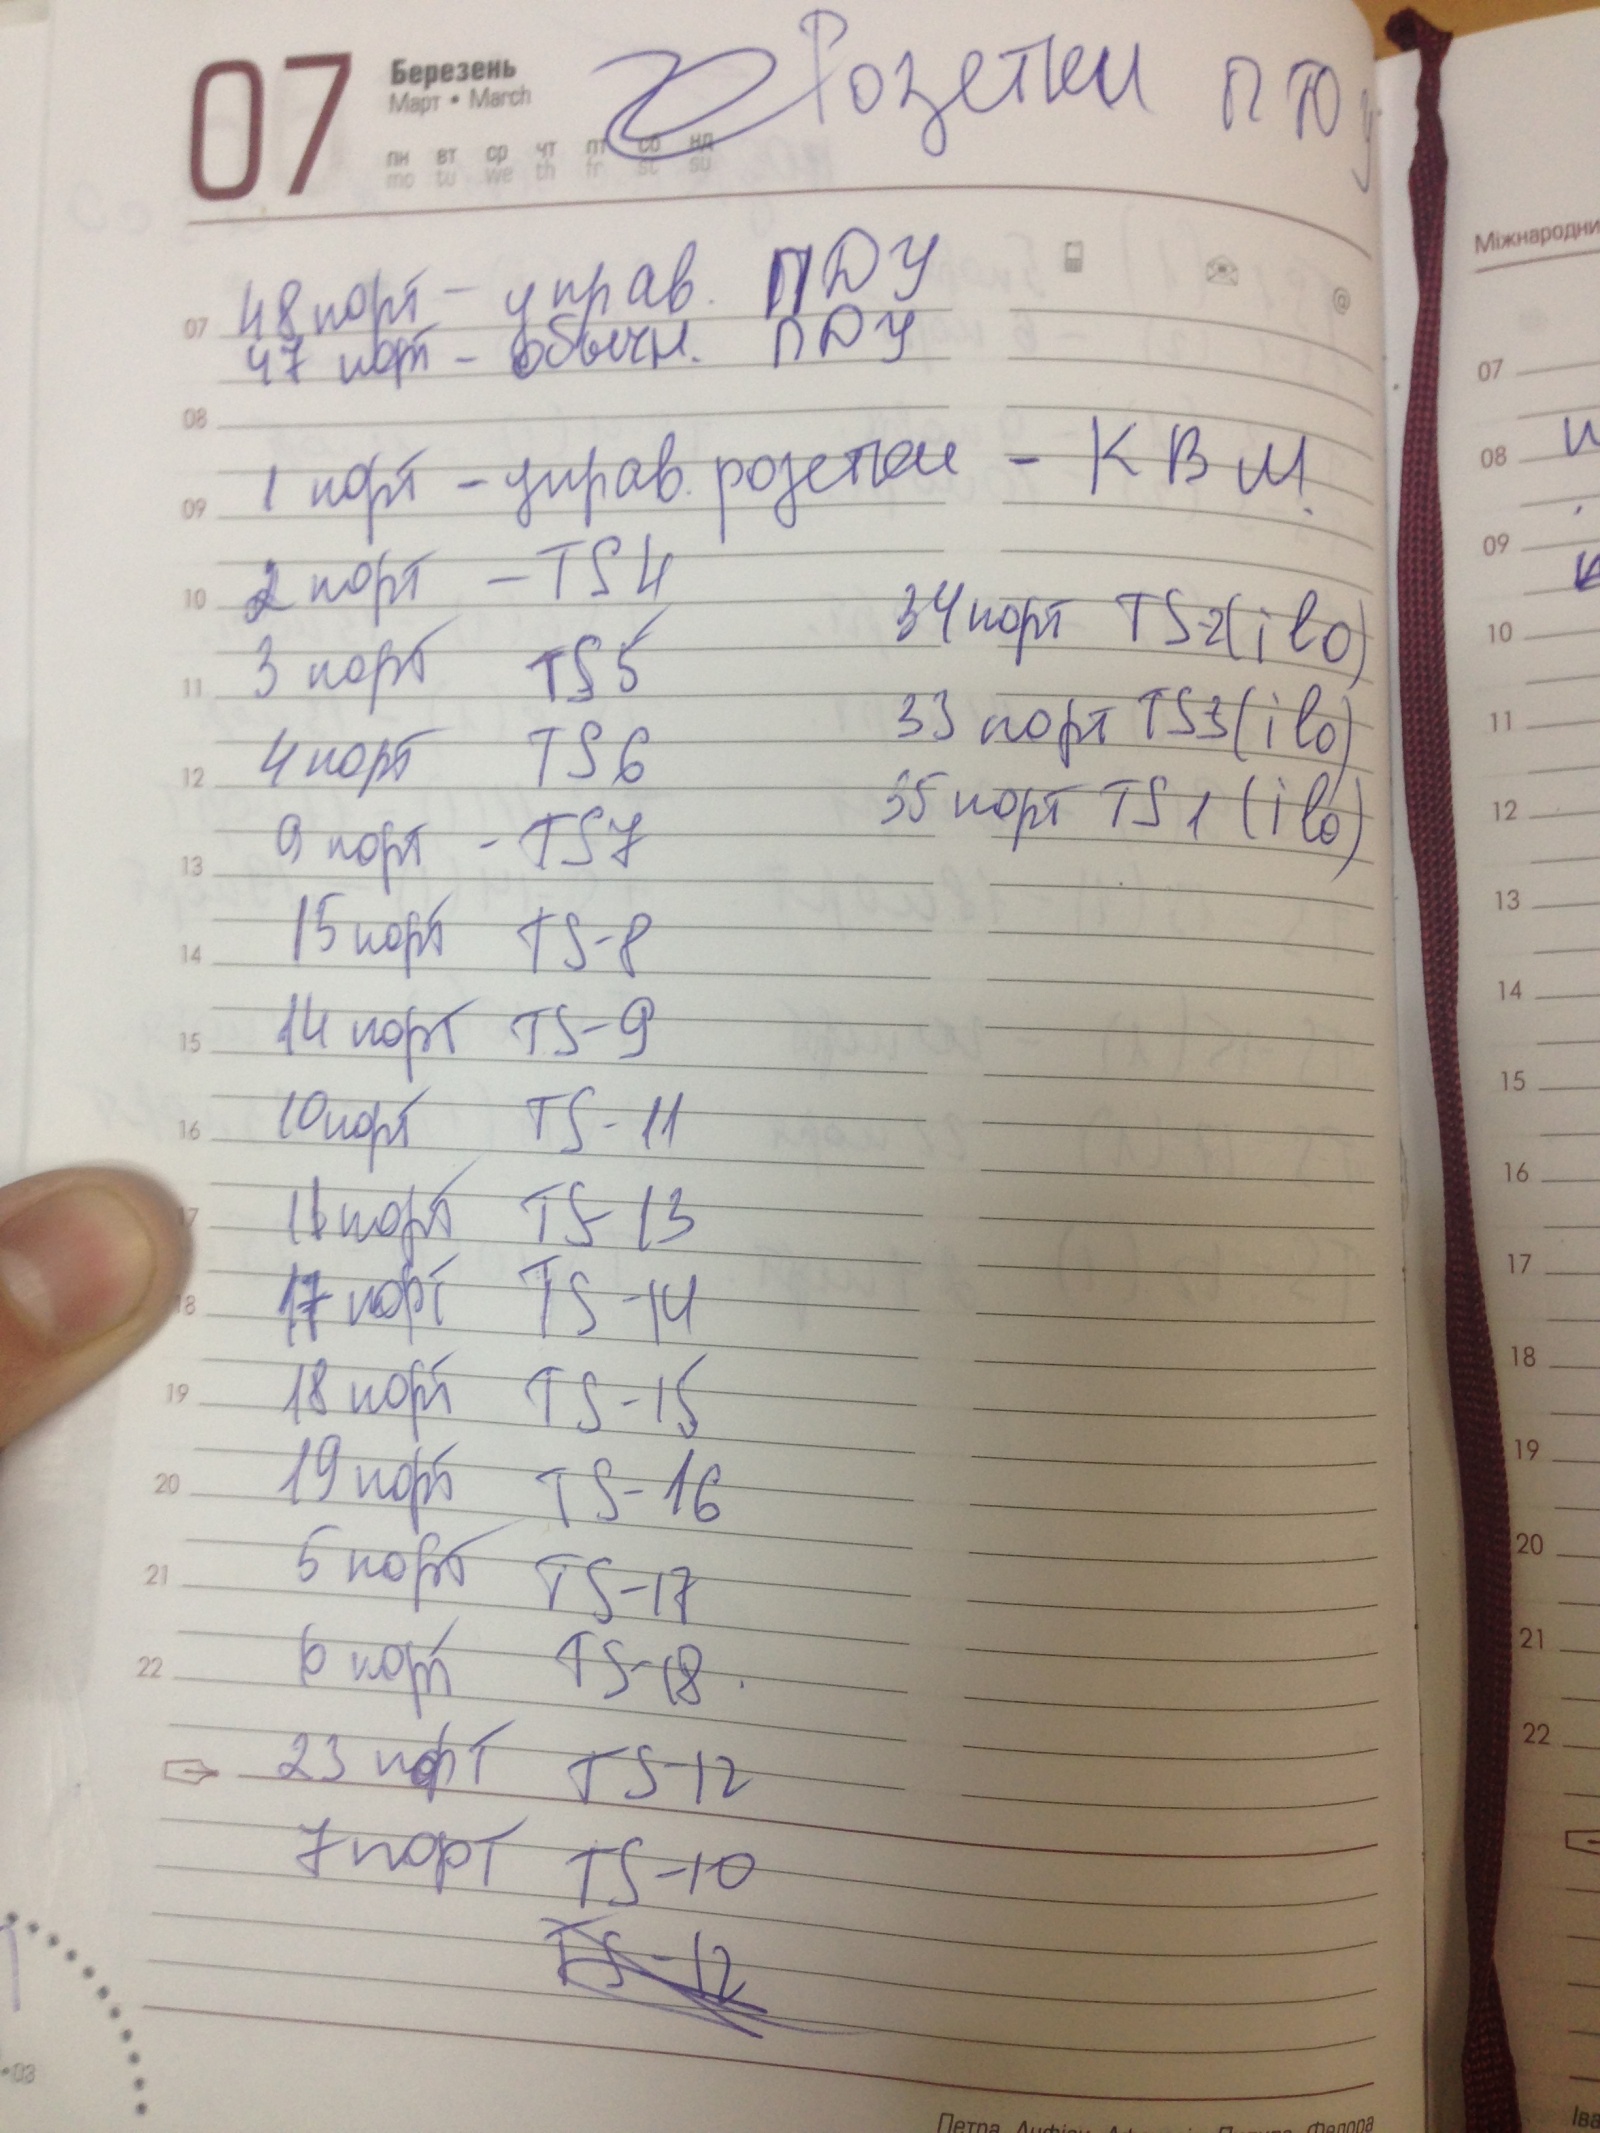 07
Березень
Март • March
Розетки ПДУ
пн вт ср чт пт сб нд
mo tu we th fr st su
48 порт - управ. ПДУ
07
47 порт - обычн. ПДУ
08
1 порт - управ. розетки - КВМ.
09
2 порт - TS4
10
34 порт TS-2(ilo)
3 порт TS5
11
33 порт TS3(ilo)
4 порт TS6
12
35 порт TS1 (ilo)
9 порт - TS7
13
15 порт TS-8
14
14 порт TS-9
15
10 порт TS-11
16
порт TS-13
17 порт TS-14
18
18 порт TS-15
19
19 порт TS-16
20
5 порт TS-17
21
6 порт TS-18.
22
23 порт TS-12
7 порт TS-10
TS-12
Міжнародни
07
08
09
10
11
12
13
14
15
16
17
18
19
20
21
22
Іва